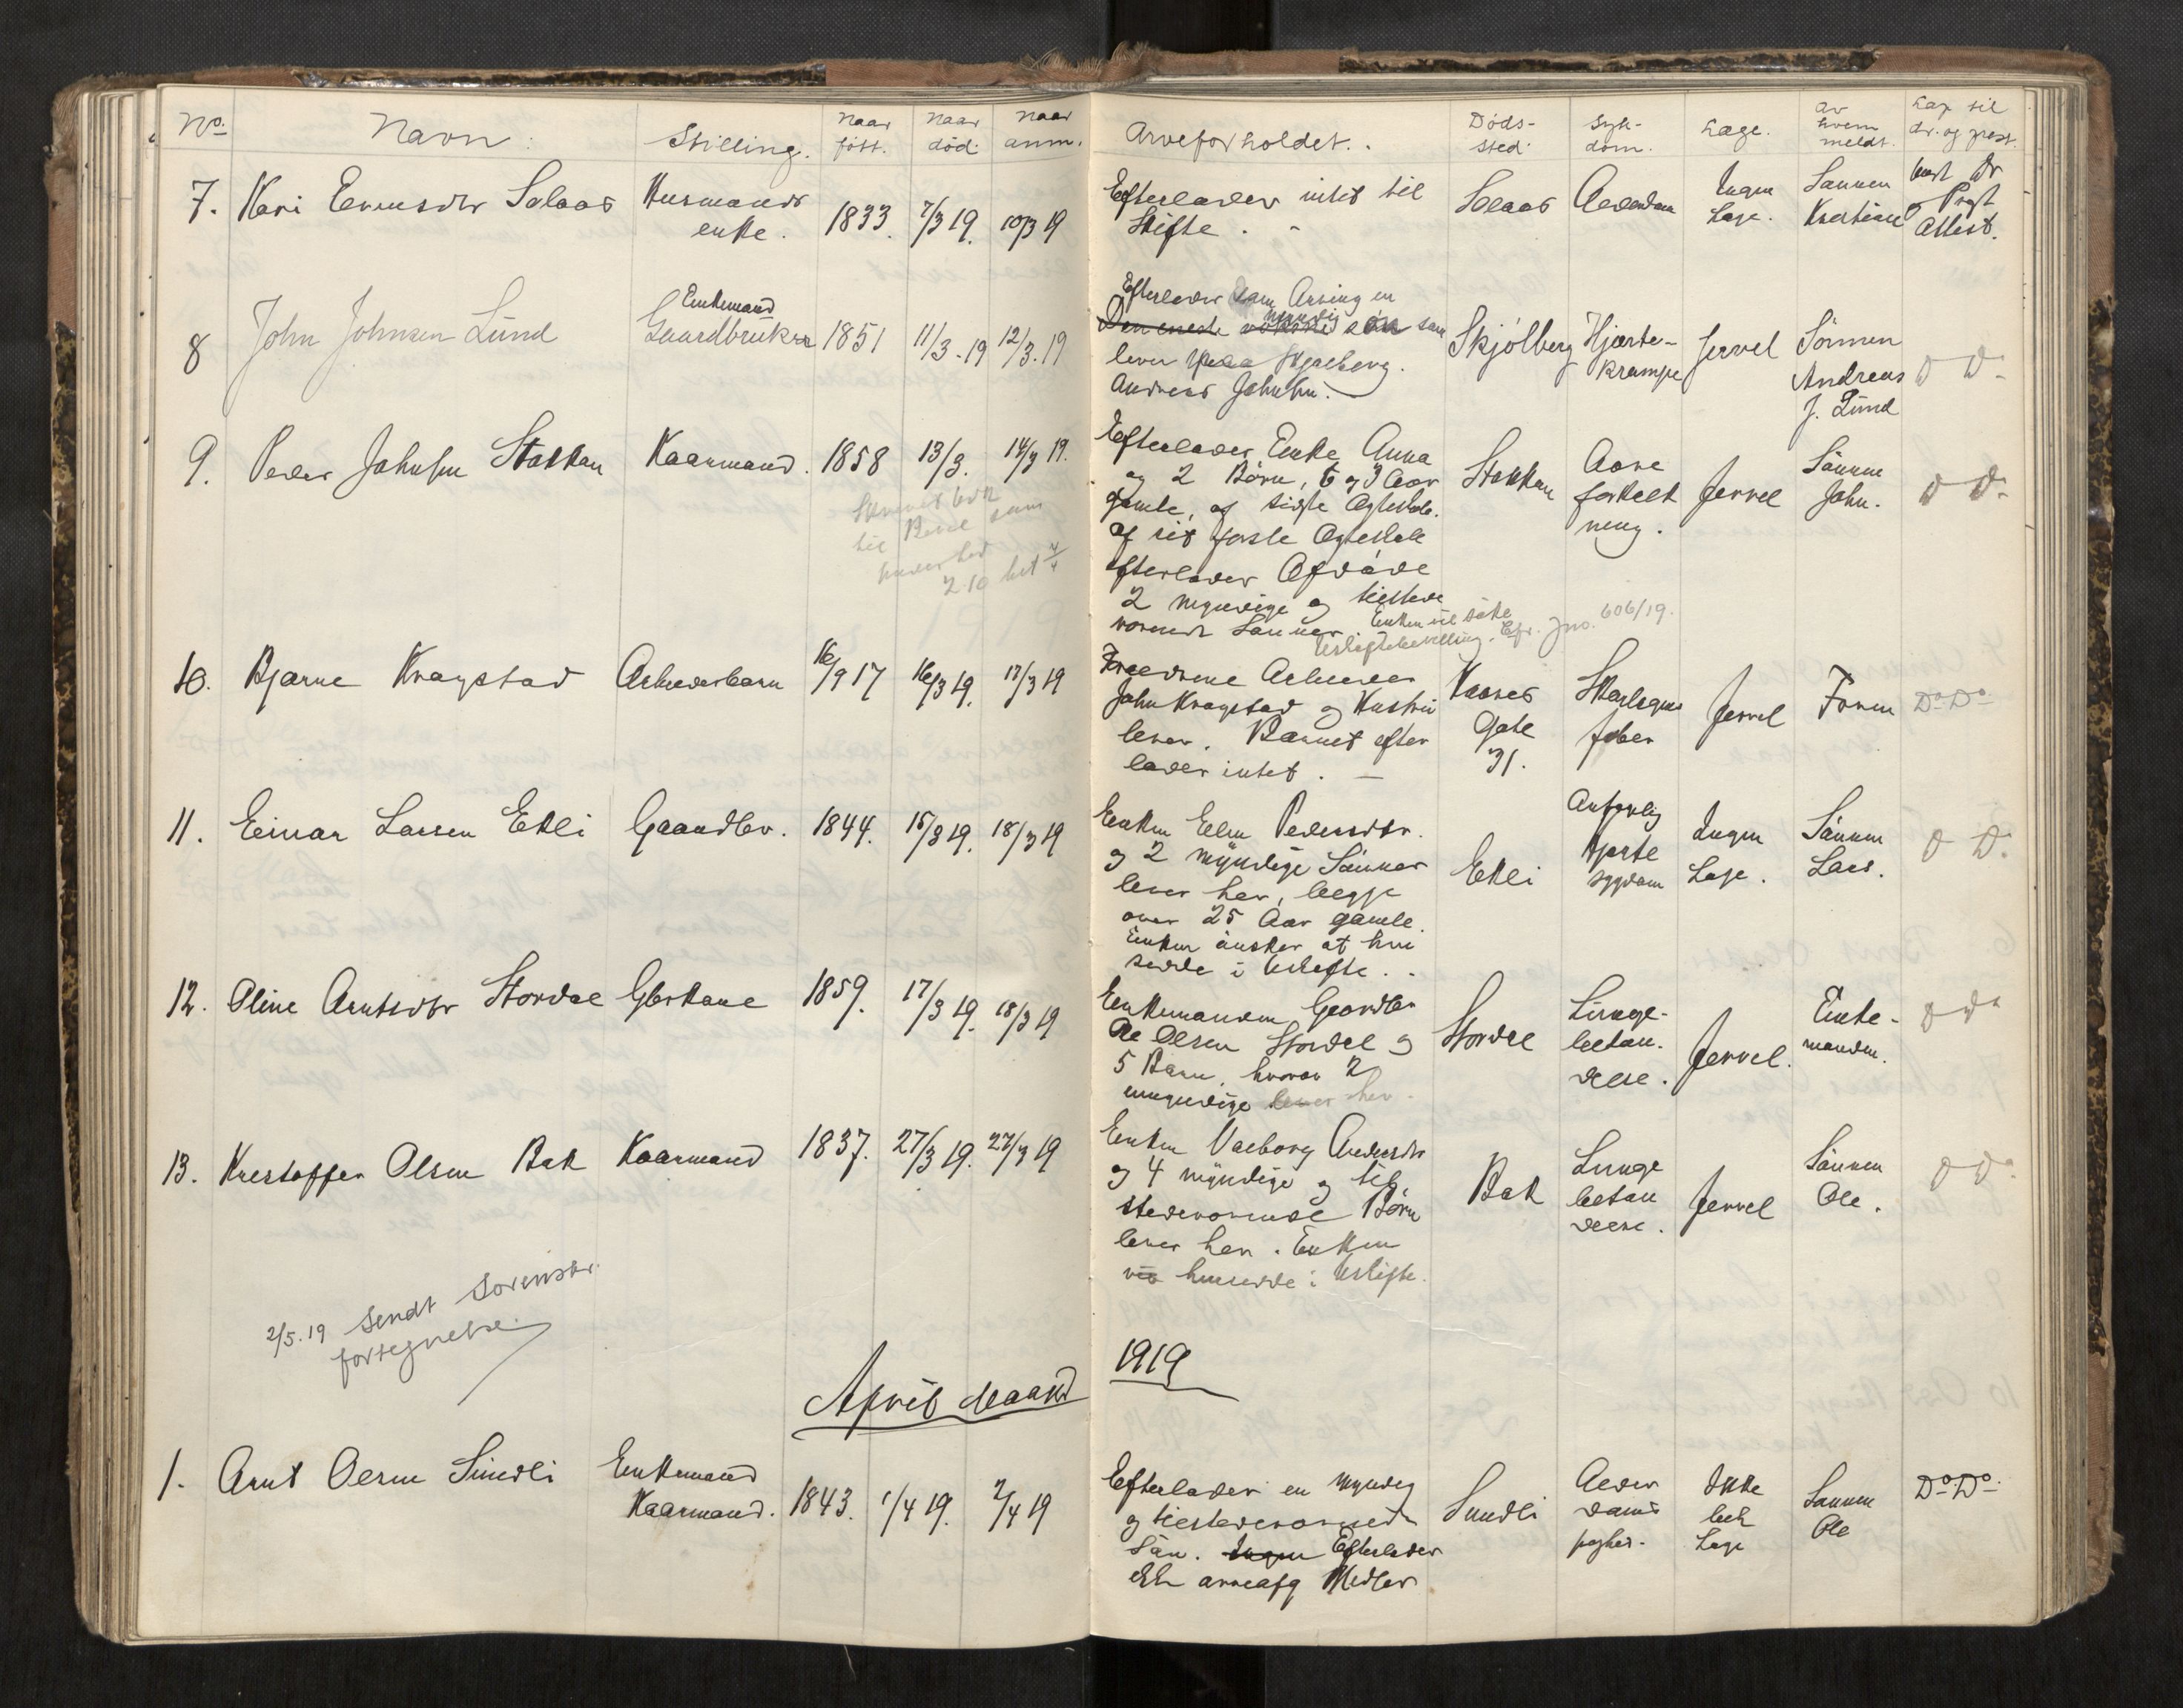 No. Navn: Stilling. Naar født. Naar død. Naar anm. Arveforholdet. Døds-sted. Syk-dom. Læge. av hvem meldt.
7. Kari Evensdtr Solaas Husmands
enke. 1833. 7/3 19. 10/3 19
Efterlader intet til
Skifte.
Solaas Alderdom Ingen
Læge. Sønnen
Kristian Prest
Attest.
8 John Johnsen Lund Enkemand
Gaardbruker 1851 11/3-19 12/3.19
Efterlader som Arving en
Den eneste voksne myndig søn som
lever paa Skjølberg.
Andreas Johnsen.
Skjølberg Hjærte-
krampe Jervel Sönnen
Andreas
J. Lund D D.
9. Peder Johnsen Stokkan Kaarmand. 1858 13/3. 14/3 19.
Efterlader Enke Anna
og 2 Børn, 6 og 3 Aar
gamle, af sidste Ægteskab.
Af sit første Ægteskab
efterlader Afdøde
2 myndige og tilstede
værende Sønner. Enken vil søke
Uskiftebevilling. Cfr. Jno. 606/19.
Stokkan Aare
forkalk
ning. Jervel Sønnen
John. D D.
10. Bjarne Kragstad Arbeiderbarn 16/9 17 16/3 19. 17/3 19
Forældrene Arbeider
John Kragstad og Hustru
lever. Barnet efter
lader intet.
Gate
31. Skarlagens
feber Jervel Faren Do Do
11. Einar Larsen Ekli Gaardbr. 1844. 15/3 19. 18/3 19
Enken Elen Pedersdtr.
og 2 myndige Sønner
lever her, begge
over 25 Aar gamle.
Enken ønsker at hen
sidde i Uskifte.
Ekli
Hjerte
sygdom Ingen
Læge. Sønnen
Lars. D D.
12. Oline Arntsdtr Stordal Gbrkone 1859. 17/3 19. 18/3 19
Enkemanden Gaardbr
Ole Olsen Stordal og
5 Barn, hvorav 2
umyndige lever her.
Stordal Lunge-
betæn-
delse. Jervel. Enke-
manden. D Do
13. Kristoffer Olsen Bak Kaarmand 1837. 27/3 19. 27/3 19
Enken Valborg Andersdtr
og 4 myndige og til
stedeværende Børn
lever her. Enken
vil hensidde i Uskifte.
Bak Lunge
betæn
delse. Jervel Sønnen
Ole. D Do
2/5.19 Sendt Sorenskr.
fortegnelse
April Maaned 1919
1. Arnt Olsen Sundli Enkemand
Kaarmand. 1843. 1/4 19. 2/4 19
Efterlader en myndig
og tilstedeværende
Søn. Ingen Efterlader
Midler
Sundli Alder
doms Ikke
Læge Sønnen
Ole Do Do